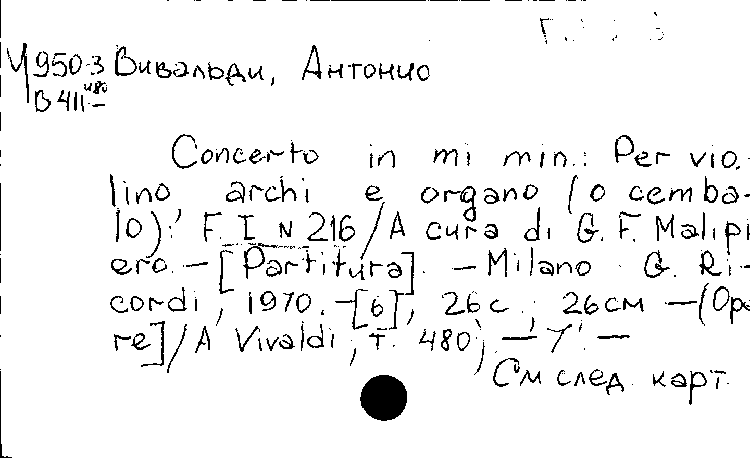 Ч950-3 Вивальди, Антонио
В 411 480 —
Concerto in mi min.: Per vio-
lino archi e organo (o cemba-
lo): F. I N 216 / A cura di G. F. Malipi
ero. — [Partitura]. — Milano: G. Ri-
cordi, 1970. — [6], 26 с.; 26 см — (Ope
re] / A Vivaldi; т. 480). —
См след. карт.